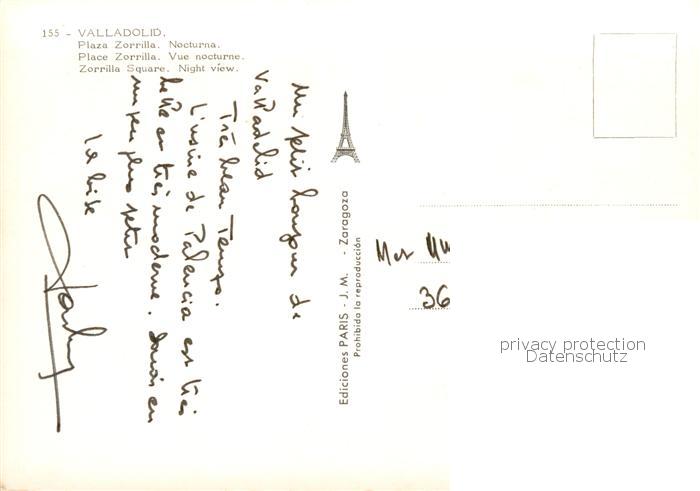 155 - VALLADOLID.
Plaza Zorrilla. Nocturna.
Place Zorrilla. Vue nocturne.
Zorrilla Square. Night view.
Un petit bonjour de
Valladolid
Très beau Temps.
L'usine de Palencia est très
belle et très moderne.
un peu plus petit
La bise
Ediciones PARIS - J. M. - Zaragoza
Prohibida la reproducción
36
privacy protection
Datenschutz